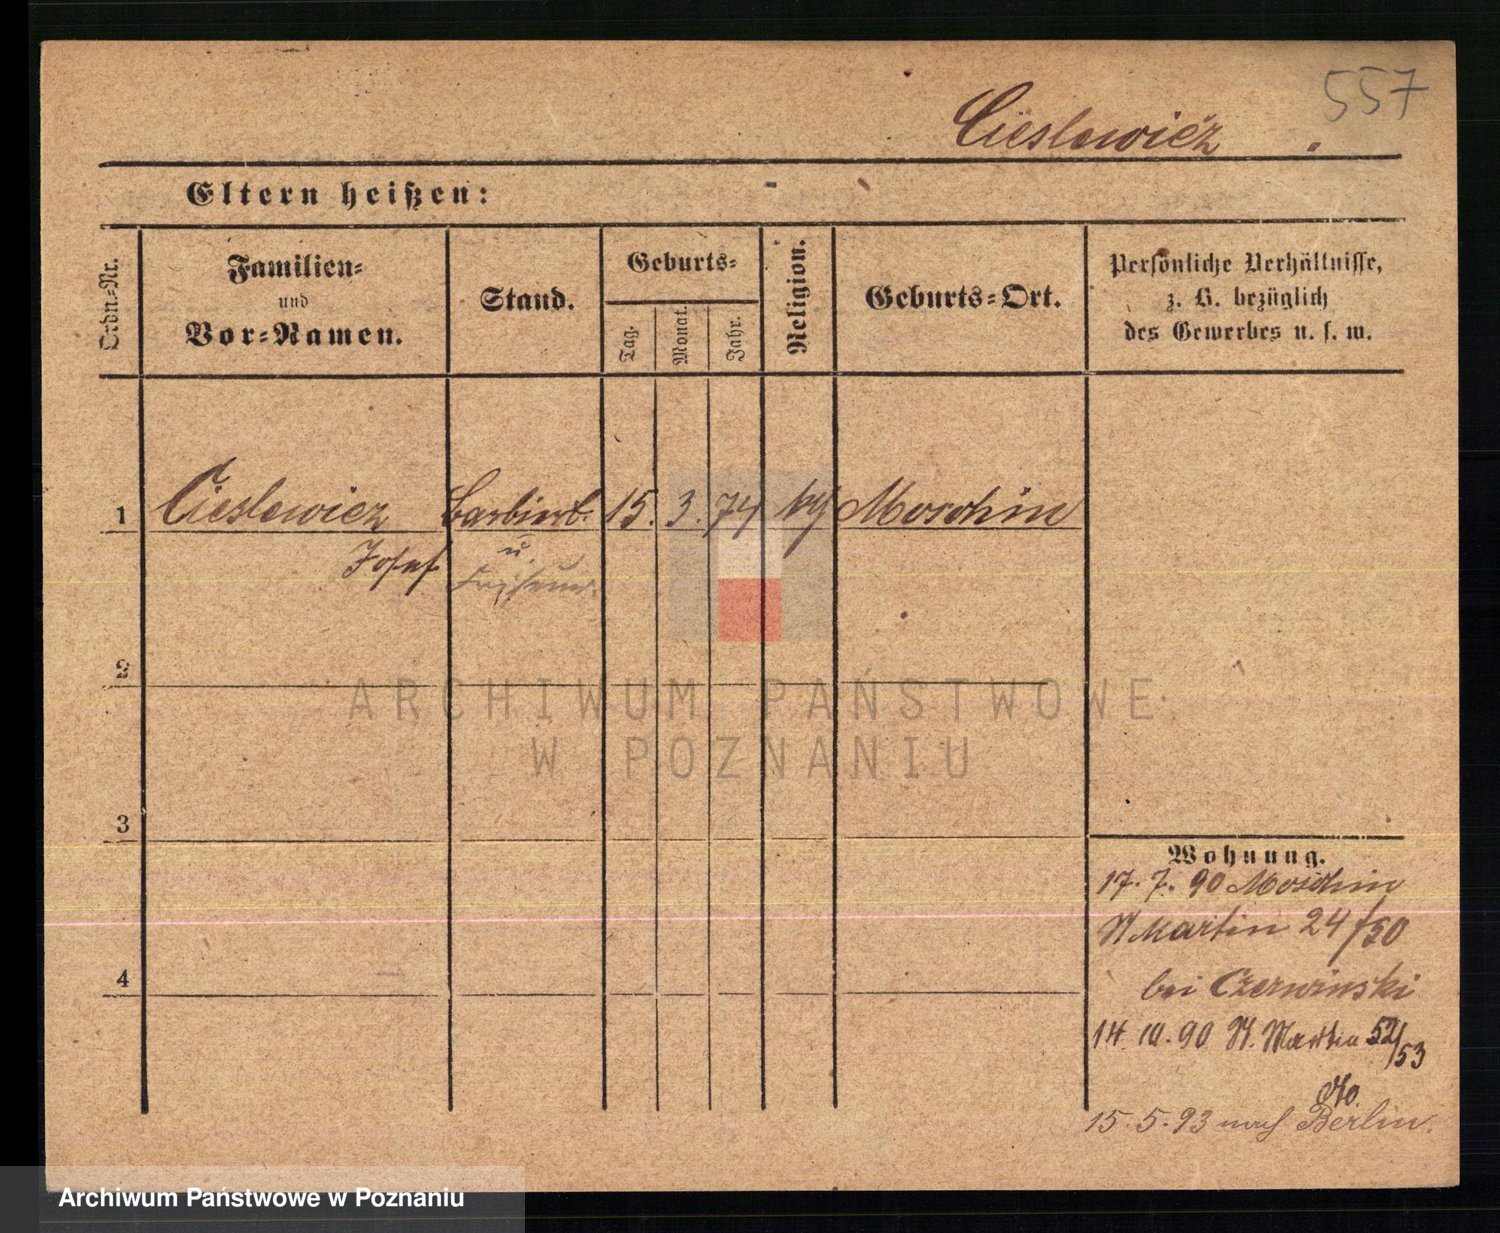 557
Cieslewicz
Eltern heißen:
Ordn.=Nr.
Familien=
und
Vor=Namen.
Stand.
Geburts=
Tag.
Monat.
Jahr.
Religion.
Geburts=Ort.
Persönliche Verhältnisse,
z. B. bezüglich
des Gewerbes u. s. w.
1 Cieslewicz 15. 3. 74 Moschin
Josef
u.
Friseur.
2
ARCHIWUM PAŃSTWOWE
W POZNANIU
3
Wohnung.
17. 7. 90 Moschin
St Martin 24/50
4
bei Czerwinski
14. 10. 90 St. Martin 52/53
15. 5. 93 nach Berlin.
Archiwum Państwowe w Poznaniu